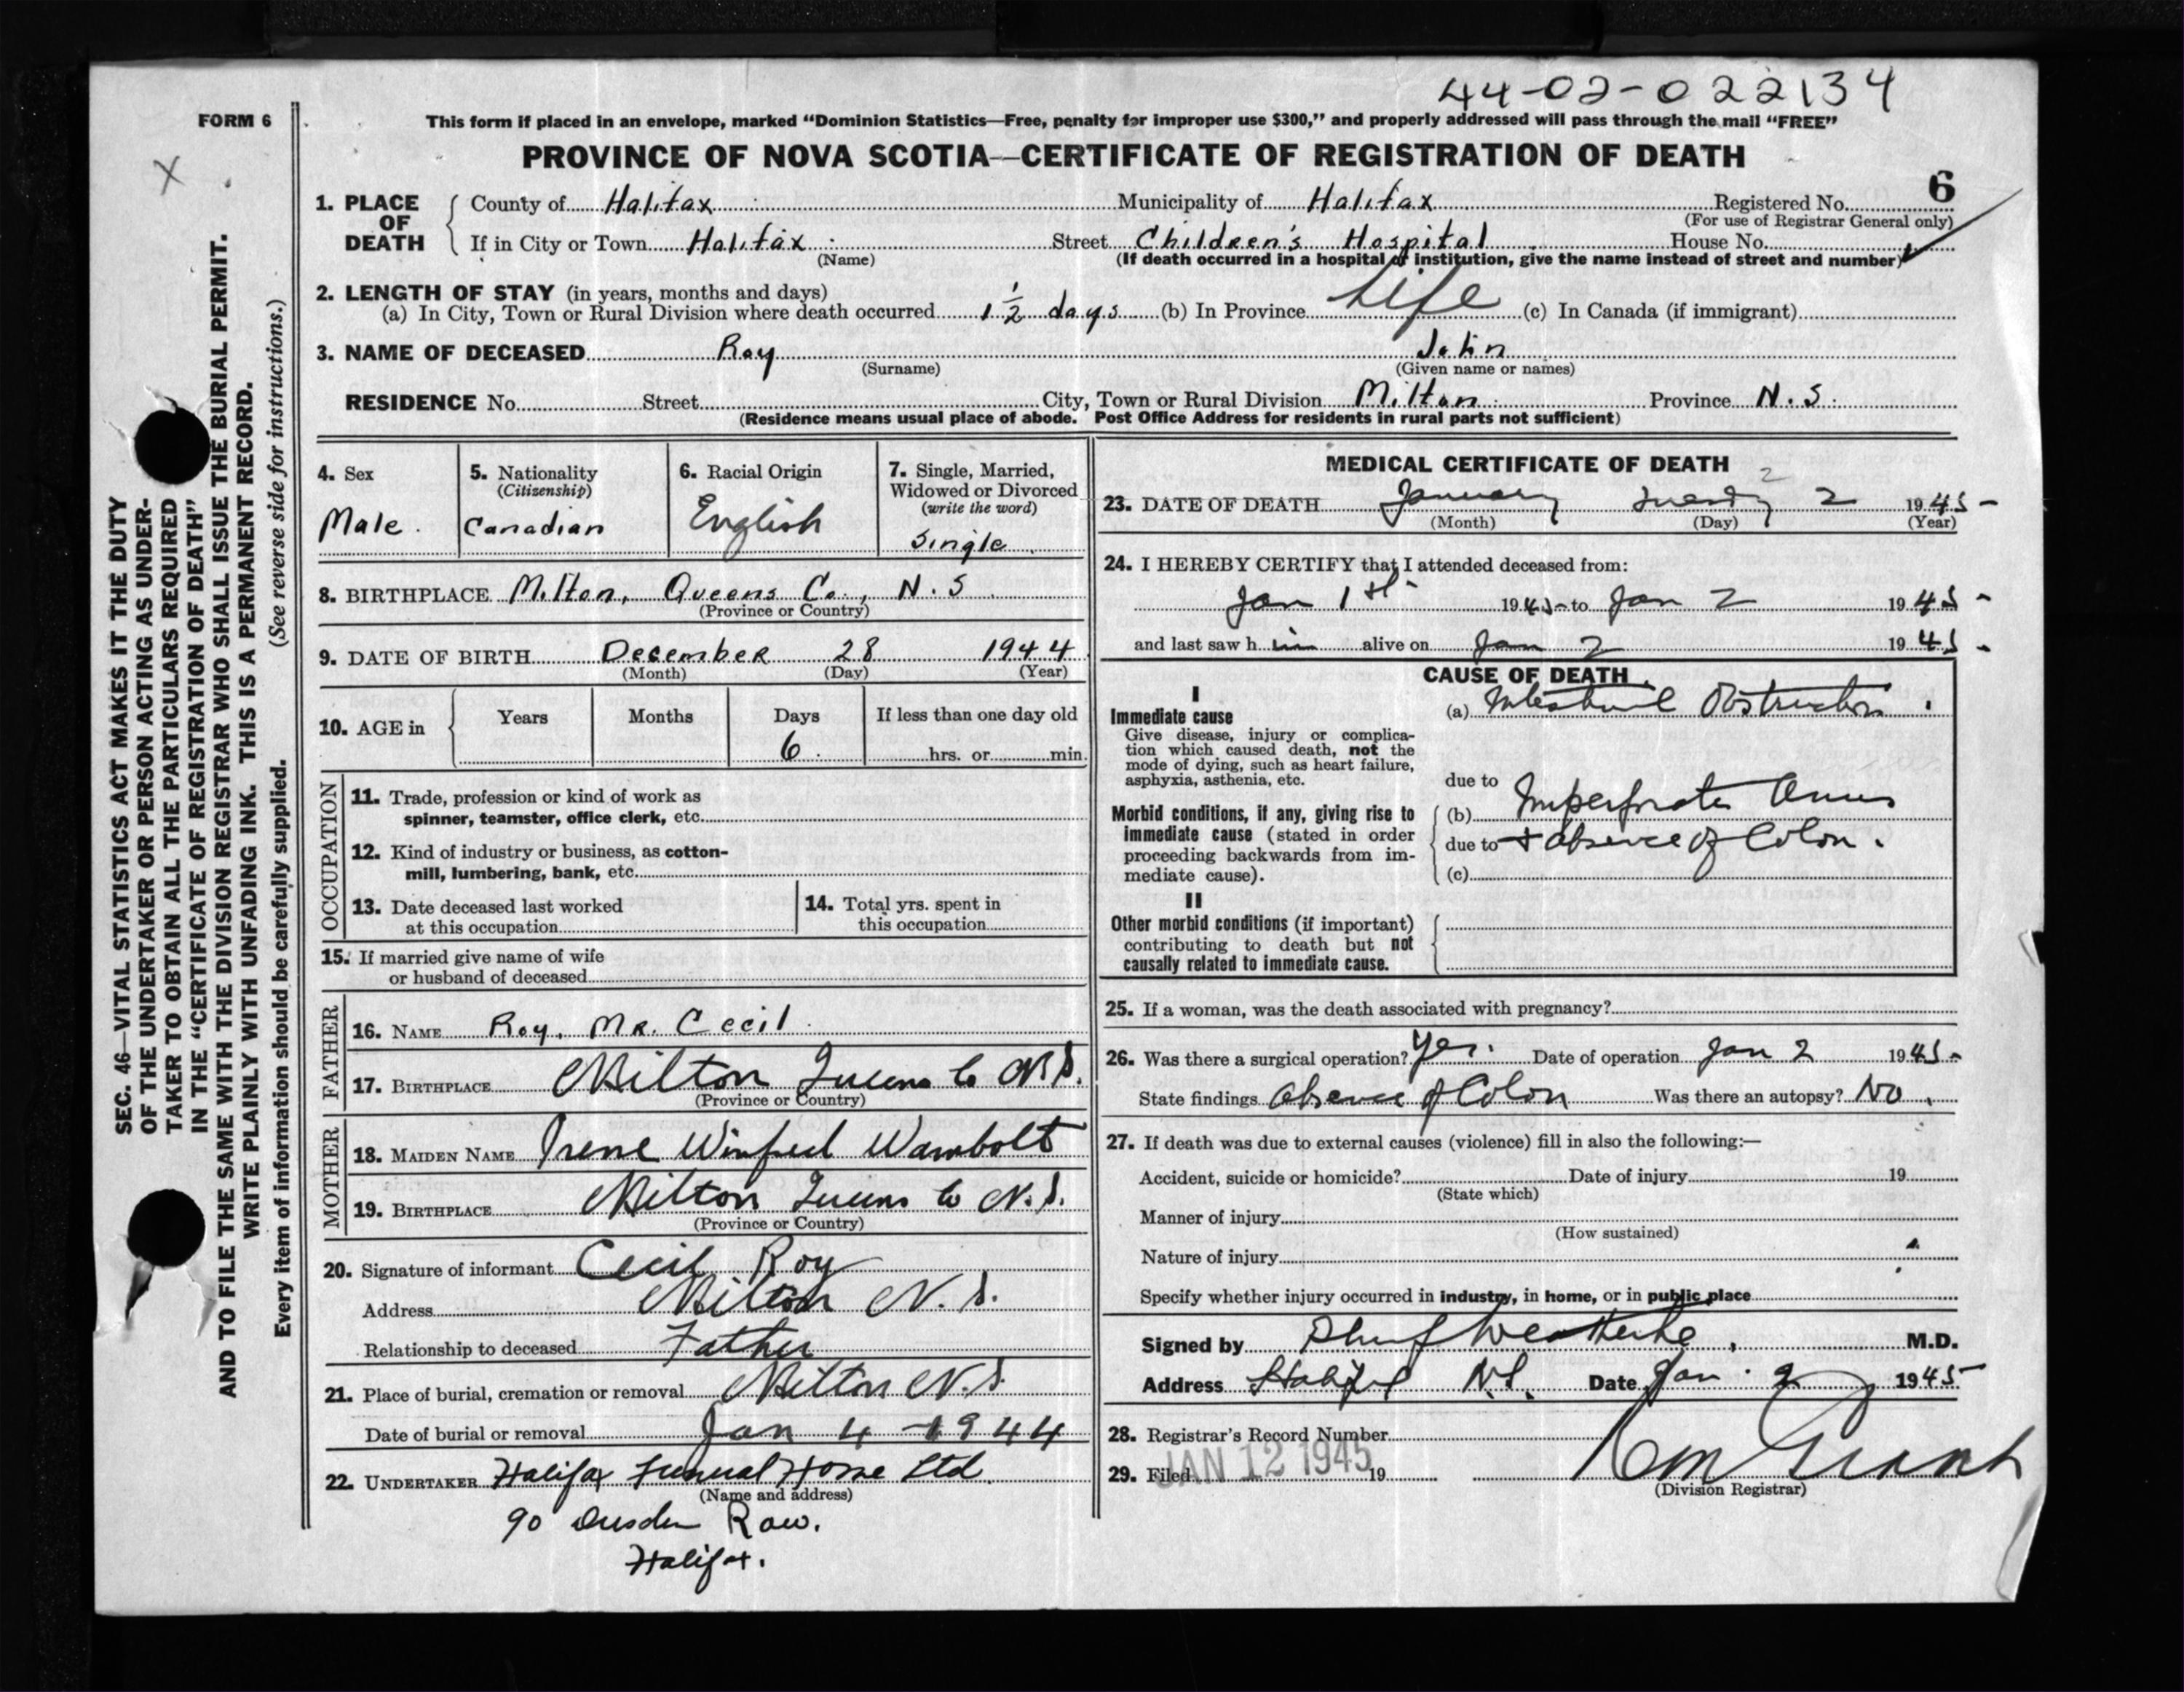 44-02-022134
FORM 6
This form if placed in an envelope, marked "Dominion Statistics—Free, penalty for improper use $300," and properly addressed will pass through the mail "FREE"
PROVINCE OF NOVA SCOTIA—CERTIFICATE OF REGISTRATION OF DEATH
6
1. PLACE OF DEATH County of Halifax Municipality of Halifax Registered No.
(For use of Registrar General only)
If in City or Town Halifax Street Children's Hospital House No.
(Name) (If death occurred in a hospital or institution, give the name instead of street and number)
2. LENGTH OF STAY (in years, months and days)
(a) In City, Town or Rural Division where death occurred 1 1/2 days (b) In Province Life (c) In Canada (if immigrant)
3. NAME OF DECEASED Roy John
(Surname) (Given name or names)
RESIDENCE No. Street City, Town or Rural Division Milton Province N.S.
(Residence means usual place of abode. Post Office Address for residents in rural parts not sufficient)
4. Sex Male.
5. Nationality (Citizenship) Canadian
6. Racial Origin English
7. Single, Married, Widowed or Divorced (write the word) Single
8. BIRTHPLACE Milton, Queens Co., N.S
(Province or Country)
9. DATE OF BIRTH December 28 1944
(Month) (Day) (Year)
10. AGE in Years Months Days If less than one day old
6 hrs. or min.
OCCUPATION
11. Trade, profession or kind of work as
spinner, teamster, office clerk, etc.
12. Kind of industry or business, as cotton-
mill, lumbering, bank, etc.
13. Date deceased last worked
at this occupation
14. Total yrs. spent in
this occupation
15. If married give name of wife
or husband of deceased
FATHER
16. NAME Roy, Mr. Cecil
17. BIRTHPLACE Milton Queens Co N.S.
(Province or Country)
MOTHER
18. MAIDEN NAME Irene Winfred Wambolt
19. BIRTHPLACE Milton Queens Co N.S.
(Province or Country)
20. Signature of informant Cecil Roy
Address Milton N.S.
Relationship to deceased Father
21. Place of burial, cremation or removal Milton N.S.
Date of burial or removal Jan 4 - 1944
22. UNDERTAKER Halifax Funeral Home Ltd.
(Name and address)
90 Dresden Row.
Halifax.
MEDICAL CERTIFICATE OF DEATH
2
23. DATE OF DEATH January 2 1945
(Month) (Day) (Year)
24. I HEREBY CERTIFY that I attended deceased from:
Jan 1st 1945 to Jan 2 1945
and last saw him alive on Jan 2 1945
CAUSE OF DEATH
I
Immediate cause
Give disease, injury or complica-
tion which caused death, not the
mode of dying, such as heart failure,
asphyxia, asthenia, etc.
(a) Intestinal Obstruction.
due to
Morbid conditions, if any, giving rise to
immediate cause (stated in order
proceeding backwards from im-
mediate cause).
(b) Imperforate Anus
due to + absence of Colon.
(c)
II
Other morbid conditions (if important)
contributing to death but not
causally related to immediate cause.
25. If a woman, was the death associated with pregnancy?
26. Was there a surgical operation? Yes. Date of operation Jan 2 1945
State findings Absence of Colon Was there an autopsy? No.
27. If death was due to external causes (violence) fill in also the following:—
Accident, suicide or homicide? Date of injury 19
(State which)
Manner of injury
(How sustained)
Nature of injury
Specify whether injury occurred in industry, in home, or in public place
Signed by M.D.
Address Halifax N.S. Date Jan. 2 1945
28. Registrar's Record Number
29. Filed JAN 12 1945 19
(Division Registrar)
SEC. 46—VITAL STATISTICS ACT MAKES IT THE DUTY
OF THE UNDERTAKER OR PERSON ACTING AS UNDER-
TAKER TO OBTAIN ALL THE PARTICULARS REQUIRED
IN THE "CERTIFICATE OF REGISTRATION OF DEATH"
AND TO FILE THE SAME WITH THE DIVISION REGISTRAR WHO SHALL ISSUE THE BURIAL PERMIT.
WRITE PLAINLY WITH UNFADING INK. THIS IS A PERMANENT RECORD.
Every item of information should be carefully supplied. (See reverse side for instructions.)